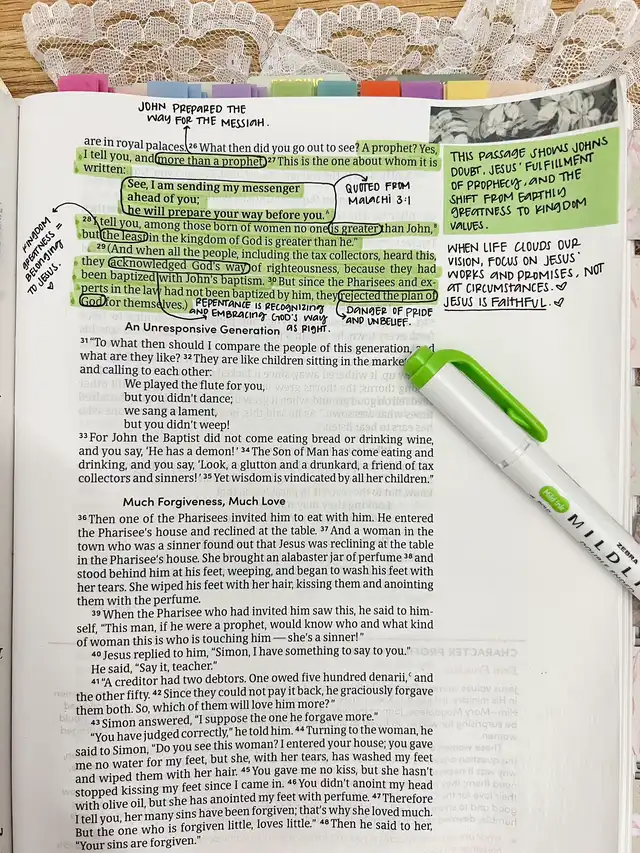 JOHN PREPARED THE
WAY FOR THE MESSIAH.
are in royal palaces. 26 What then did you go out to see? A prophet? Yes,
I tell you, and more than a prophet. 27 This is the one about whom it is
written:
See, I am sending my messenger
ahead of you;
he will prepare your way before you.
QUOTED FROM
MALACHI 3:1
28 I tell you, among those born of women no one is greater than John,
but the least in the kingdom of God is greater than he."
29 (And when all the people, including the tax collectors, heard this,
they acknowledged God's way of righteousness, because they had
been baptized with John's baptism. 30 But since the Pharisees and ex-
perts in the law had not been baptized by him, they rejected the plan of
God for themselves.)
KINGDOM
GREATNESS =
BELONGING
TO JESUS.
REPENTANCE IS RECOGNIZING
AND EMBRACING GOD'S WAY
AS RIGHT.
DANGER OF PRIDE
AND UNBELIEF.
THIS PASSAGE SHOWS JOHNS
DOUBT, JESUS' FULFILLMENT
OF PROPHECY, AND THE
SHIFT FROM EARTHLY
GREATNESS TO KINGDOM
VALUES.
WHEN LIFE CLOUDS OUR
VISION, FOCUS ON JESUS'
WORKS AND PROMISES, NOT
AT CIRCUMSTANCES.
JESUS IS FAITHFUL.
An Unresponsive Generation
31 "To what then should I compare the people of this generation, and
what are they like? 32 They are like children sitting in the
and calling to each other:
We played the flute for you,
but you didn't dance;
we sang a lament,
but you didn't weep!
33 For John the Baptist did not come eating bread or drinking wine,
and you say, 'He has a demon!' 34 The Son of Man has come eating and
drinking, and you say, 'Look, a glutton and a drunkard, a friend of tax
collectors and sinners!' 35 Yet wisdom is vindicated by all her children."
Much Forgiveness, Much Love
36 Then one of the Pharisees invited him to eat with him. He entered
the Pharisee's house and reclined at the table. 37 And a woman in the
town who was a sinner found out that Jesus was reclining at the table
in the Pharisee's house. She brought an alabaster jar of perfume 38 and
stood behind him at his feet, weeping, and began to wash his feet with
her tears. She wiped his feet with her hair, kissing them and anointing
them with the perfume.
39 When the Pharisee who had invited him saw this, he said to him-
self, "This man, if he were a prophet, would know who and what kind
of woman this is who is touching him — she's a sinner!"
40 Jesus replied to him, "Simon, I have something to say to you."
He said, "Say it, teacher."
41 "A creditor had two debtors. One owed five hundred denarii, and
the other fifty. 42 Since they could not pay it back, he graciously forgave
them both. So, which of them will love him more?"
43 Simon answered, "I suppose the one he forgave more."
"You have judged correctly," he told him. 44 Turning to the woman, he
said to Simon, "Do you see this woman? I entered your house; you gave
me no water for my feet, but she, with her tears, has washed my feet
and wiped them with her hair. 45 You gave me no kiss, but she hasn't
stopped kissing my feet since I came in. 46 You didn't anoint my head
with olive oil, but she has anointed my feet with perfume. 47 Therefore
I tell you, her many sins have been forgiven; that's why she loved much.
But the one who is forgiven little, loves little." 48 Then he said to her,
"Your sins are forgiven."
ZEBRA
MILDL